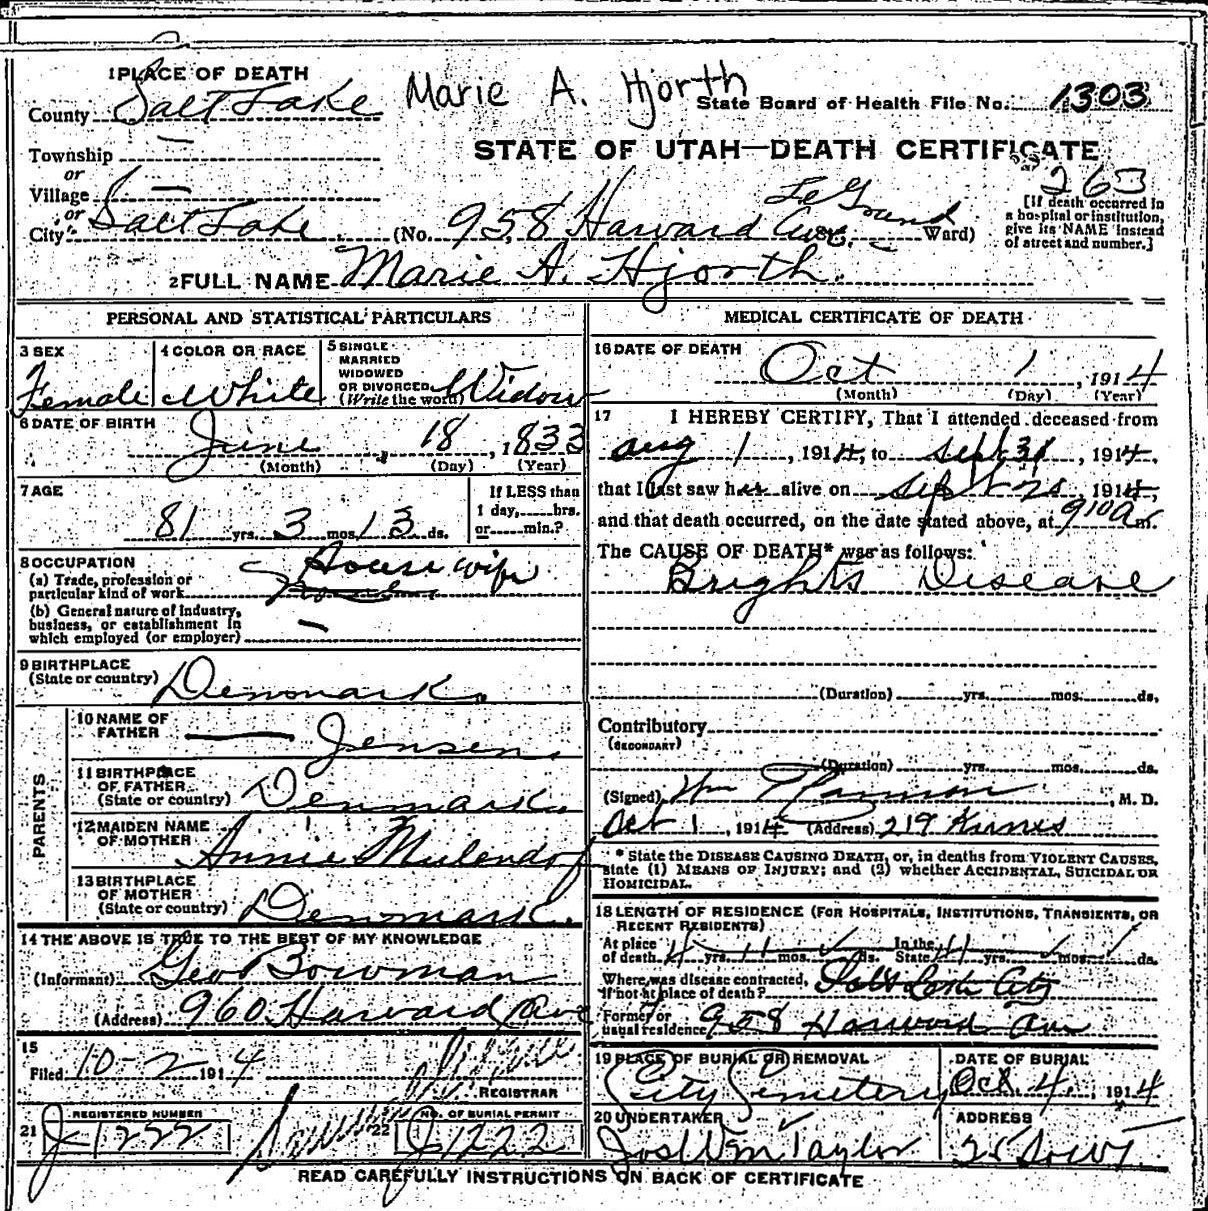 1 PLACE OF DEATH
Marie A. Hjorth
County Salt Lake
State Board of Health File No. 1303
Township —
STATE OF UTAH—DEATH CERTIFICATE
or
263
Village —
or
City Salt Lake (No. 958 Harvard Ave. St. Le Grand Ward)
[If death occurred in
a hospital or institution,
give its NAME instead
of street and number.]
2 FULL NAME Marie A. Hjorth.
PERSONAL AND STATISTICAL PARTICULARS
3 SEX
Female
4 COLOR OR RACE
White
5 SINGLE
MARRIED
WIDOWED
OR DIVORCED
(Write the word) Widow
6 DATE OF BIRTH
June 18, 1833
(Month) (Day) (Year)
7 AGE
81 yrs. 3 mos. 13 ds.
If LESS than
1 day, hrs.
or min.?
8 OCCUPATION
(a) Trade, profession or
particular kind of work
House wife
(b) General nature of industry,
business, or establishment in
which employed (or employer) —
9 BIRTHPLACE
(State or country) Denmark.
PARENTS
10 NAME OF
FATHER — Jensen.
11 BIRTHPLACE
OF FATHER
(State or country) Denmark.
12 MAIDEN NAME
OF MOTHER Annie
13 BIRTHPLACE
OF MOTHER
(State or country) Denmark.
14 THE ABOVE IS TRUE TO THE BEST OF MY KNOWLEDGE
(Informant) Geo Bowman
(Address) 960 Harvard Ave
15
Filed 10-2 1914
REGISTRAR
21 REGISTERED NUMBER
J-1222
22 NO. OF BURIAL PERMIT
J1222
MEDICAL CERTIFICATE OF DEATH
16 DATE OF DEATH
Oct 1, 1914
(Month) (Day) (Year)
17 I HEREBY CERTIFY, That I attended deceased from
Aug 1, 1914, to Sept 30, 1914,
that I last saw her alive on Sept 28, 1914,
and that death occurred, on the date stated above, at 910 A m.
The CAUSE OF DEATH* was as follows:
Brights Disease
(Duration) yrs. mos. ds.
Contributory
(SECONDARY)
(Duration) yrs. mos. ds.
(Signed) Wm, M. D.
Oct 1, 1914 (Address) 219 Kearns
* State the DISEASE CAUSING DEATH, or, in deaths from VIOLENT CAUSES,
state (1) MEANS OF INJURY; and (2) whether ACCIDENTAL, SUICIDAL OR
HOMICIDAL.
18 LENGTH OF RESIDENCE (FOR HOSPITALS, INSTITUTIONS, TRANSIENTS, OR
RECENT RESIDENTS)
At place
of death yrs. mos. ds. In the
State yrs. mos. ds.
Where was disease contracted,
If not at place of death? Salt Lake City
Former or
usual residence 958 Harvard Ave
19 PLACE OF BURIAL OR REMOVAL
City Cemetery
DATE OF BURIAL
Oct. 4, 1914
20 UNDERTAKER
Jos Wm Taylor
ADDRESS
READ CAREFULLY INSTRUCTIONS ON BACK OF CERTIFICATE